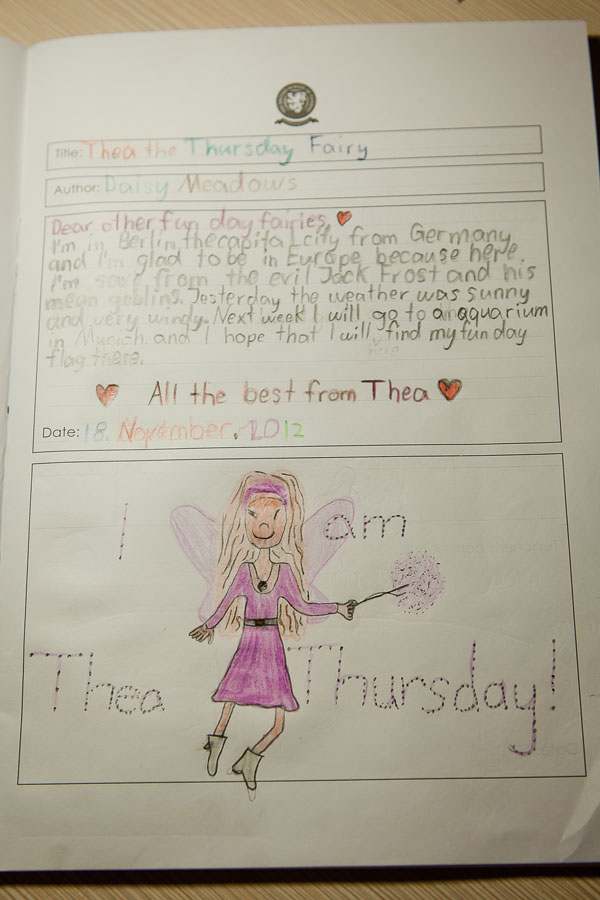 Title: Thea the Thursday Fairy
Author: Daisy Meadows
Dear other fun day fairies,
I'm in Berlin, the capital city from Germany
and I'm glad to be in Europe, because here,
I'm save from the evil Jack Frost and his
mean goblins. Yesterday the weather was sunny
and very windy. Next week I will go to an aquarium
in Munich and I hope that I will find my fun day
here
flag there.
All the best from Thea
Date: 18. November. 2012
I am
Thea Thursday!